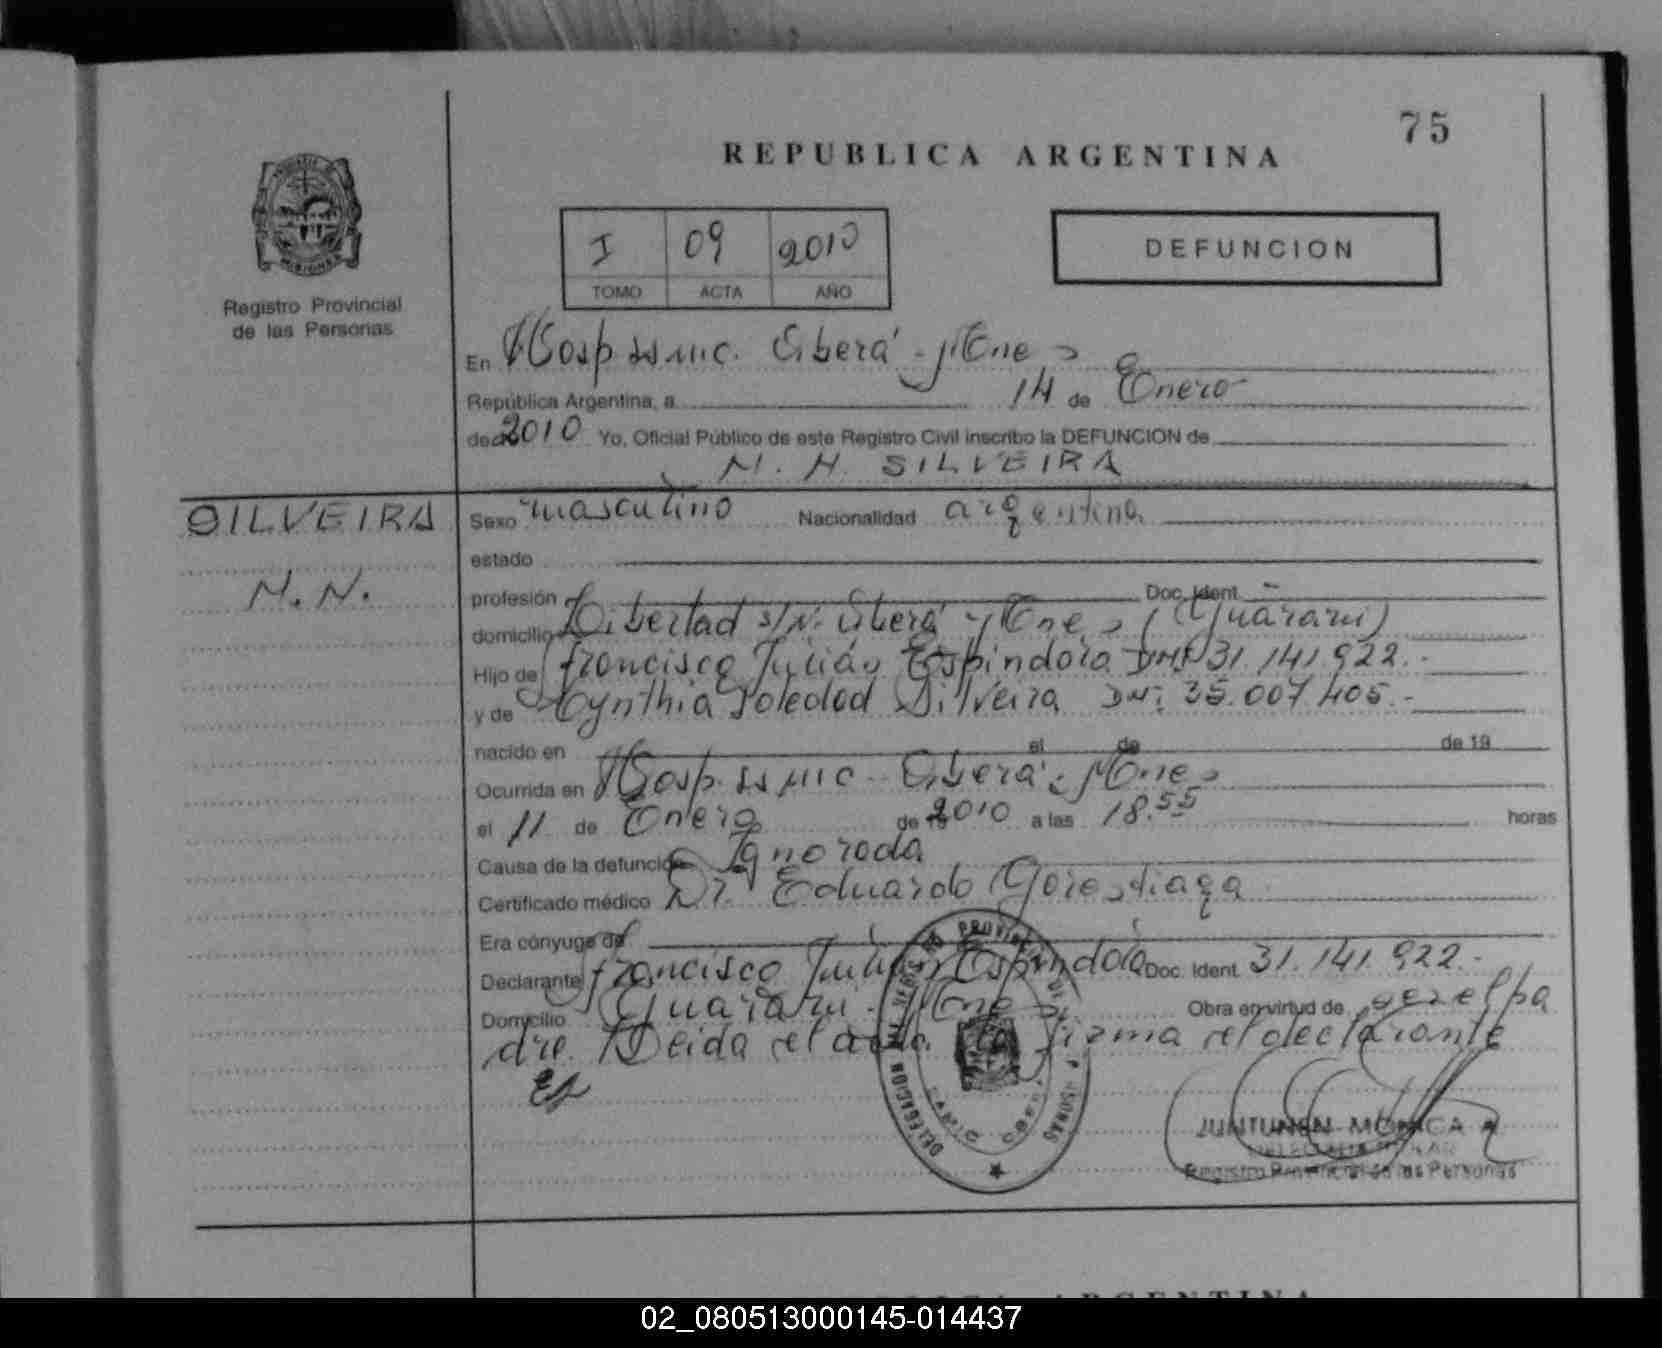 75
REPUBLICA ARGENTINA
I 09 2010
TOMO ACTA AÑO
DEFUNCION
MISIONES
Registro Provincial
de las Personas
En Hosp. SS.MIC. Oberá - Mnes
República Argentina, a 14 de Enero
de 2010 Yo, Oficial Público de este Registro Civil inscribo la DEFUNCION de
N. N. SILVEIRA
SILVEIRA
N. N.
Sexo masculino Nacionalidad argentina
estado
profesión Doc. Ident. -
domicilio Libertad s/N. Oberá - Mnes (Guaraní)
Hijo de Francisco Julián Espindola DNI 31.141.922.-
y de Cynthia Soledad Silveira DNI 35.007.405.-
nacido en el de de 19
Ocurrida en Hosp. SS.MIC. Oberá - Mnes
el 11 de Enero de 2010 a las 18.55 horas
Causa de la defunción Ignorada
Certificado médico Dr. Eduardo Gorostiaga
Era cónyuge de
Declarante Francisco Julián Espindola Doc. Ident. 31.141.922.-
Domicilio Guaraní - Mnes Obra en virtud de ser el pa
dre. Leida el acta la firma el declarante
DELEGACION DEL REGISTRO PROVINCIAL DE LAS PERSONAS
JUNTUNEN MONICA A.
Registro Provincial de las Personas
REPUBLICA ARGENTINA
02_080513000145-014437